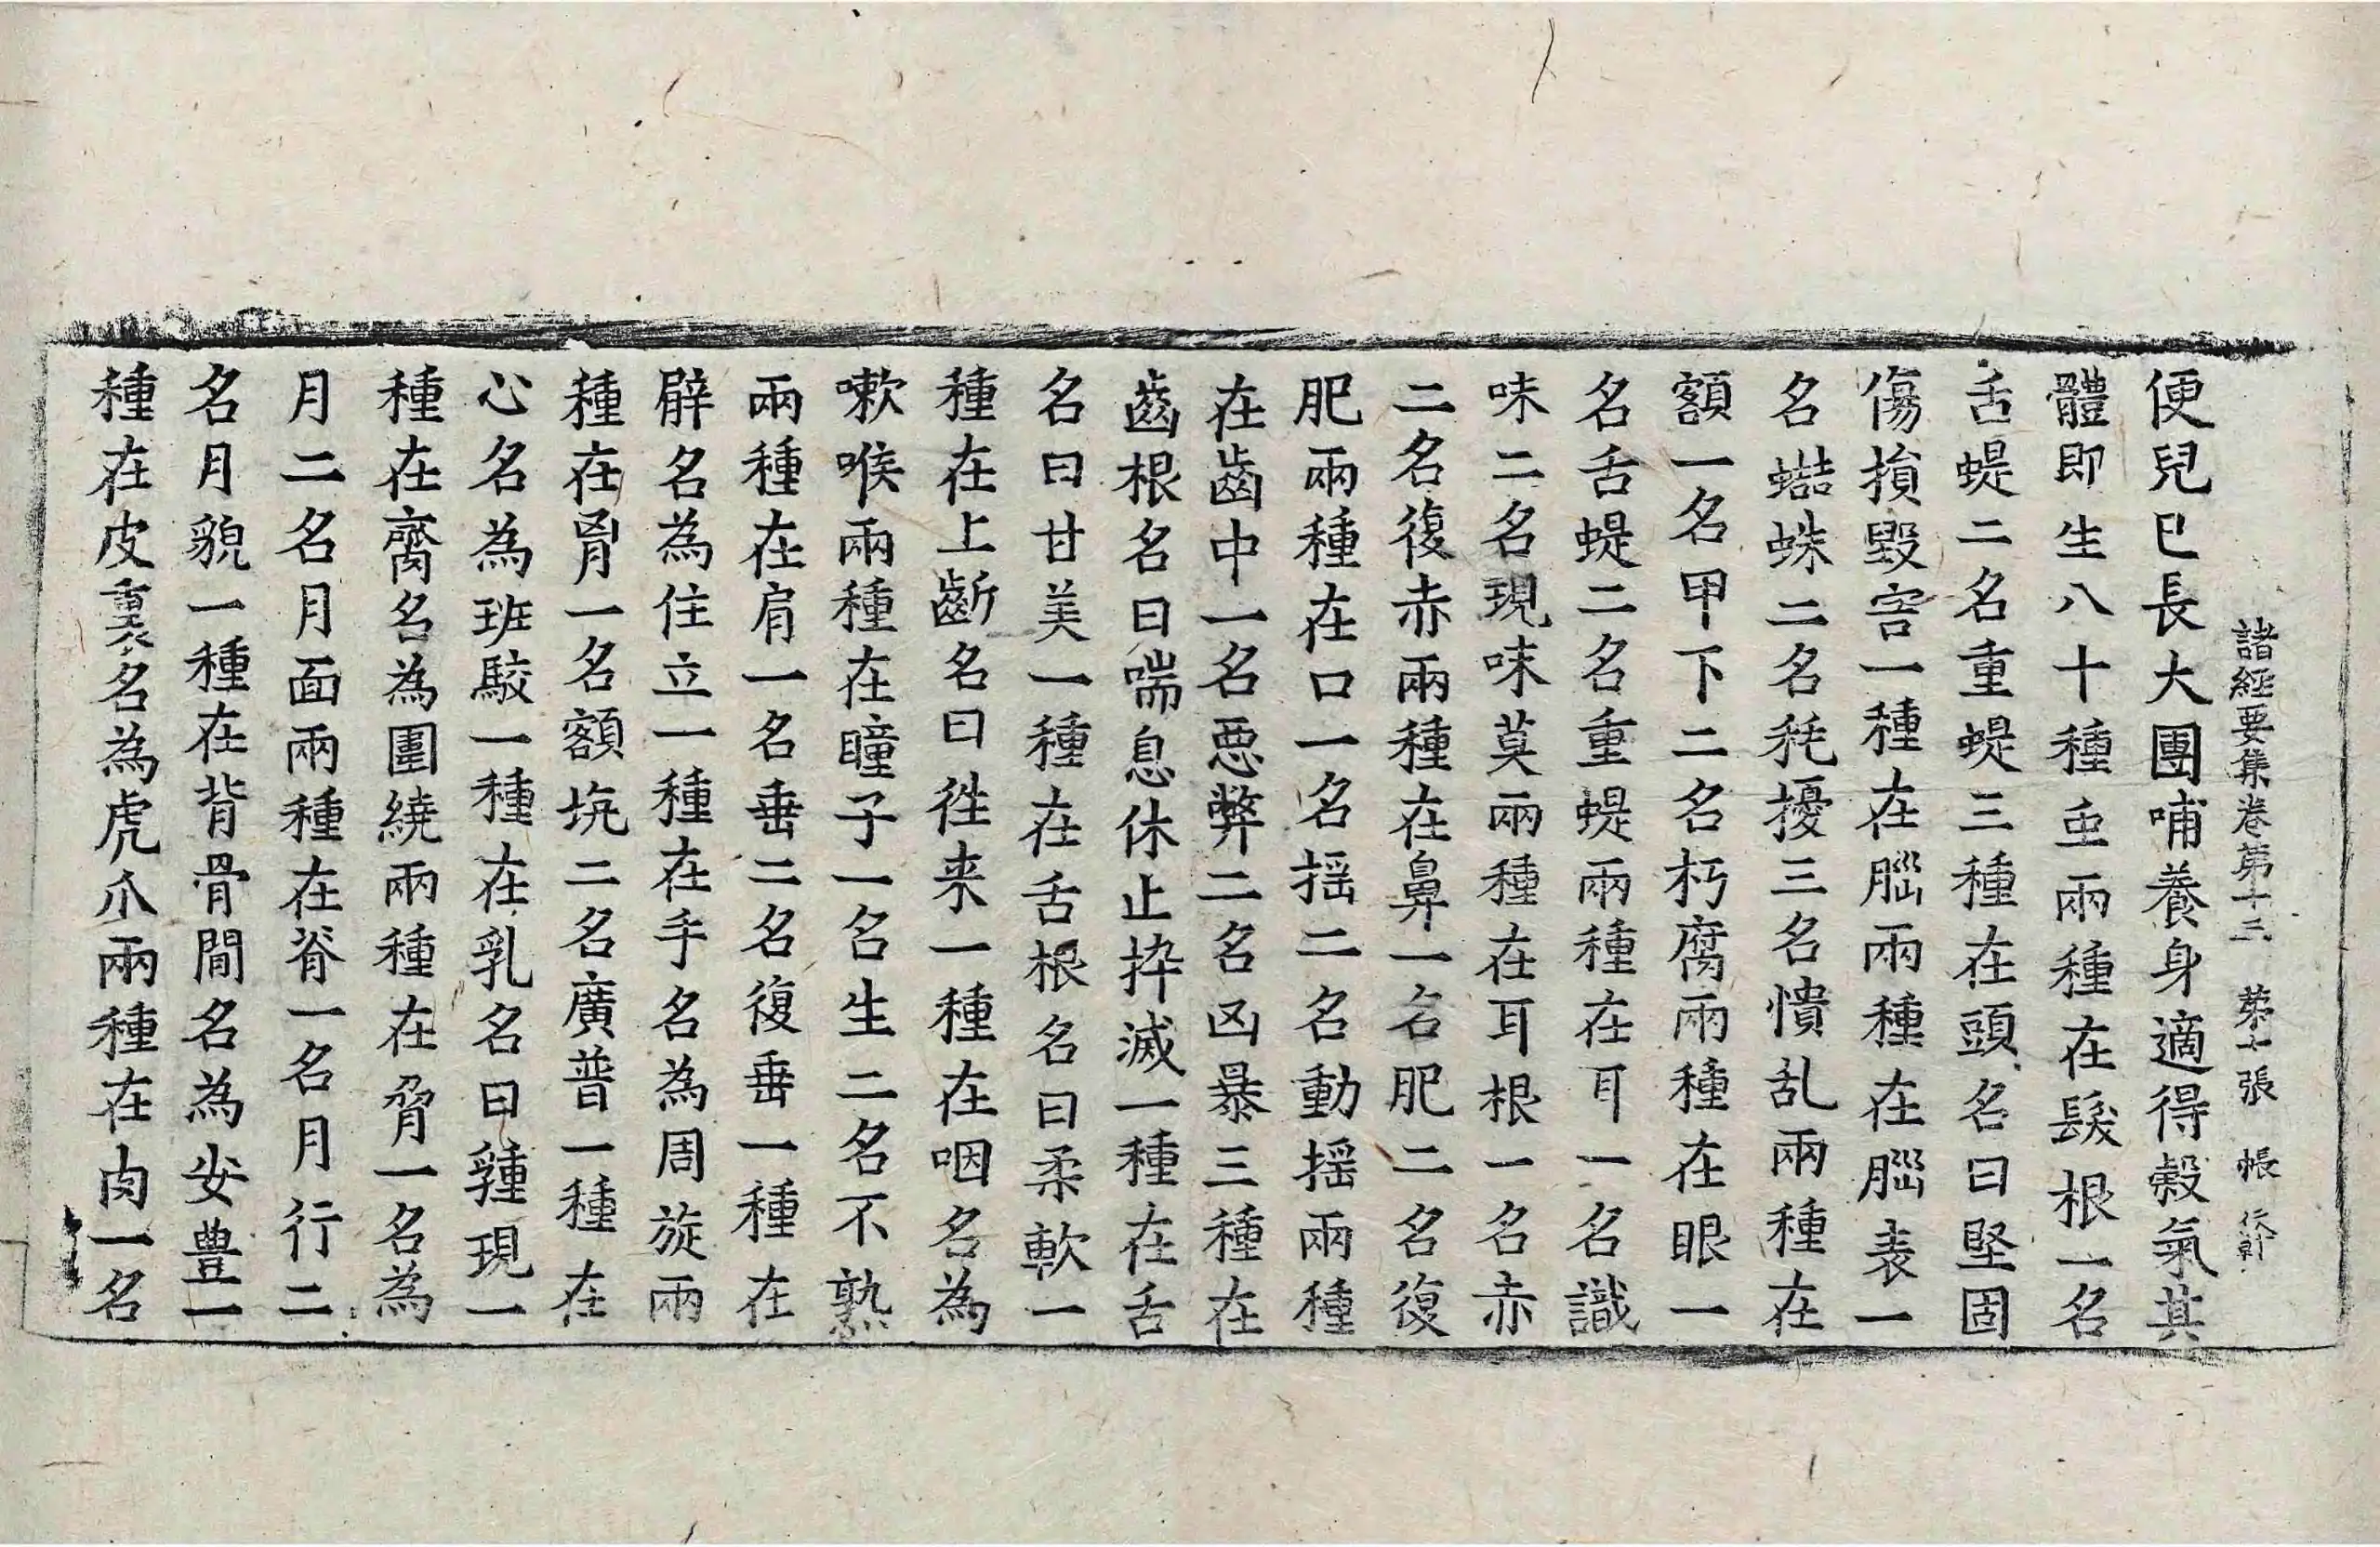 諸經要集卷第十三 第十張 帳
便兒已長大團哺養身適得穀氣其
體即生八十種虫兩種在髮根一名
舌蝭二名重蝭三種在頭名曰堅固
傷損毀害一種在腦兩種在腦表一
名蝔蛛二名耗擾三名憒乱兩種在
額一名甲下二名朽腐兩種在眼一
名舌蝭二名重蝭兩種在耳一名識
味二名現味莫兩種在耳根一名赤
二名復赤兩種在鼻一名肥二名復
肥兩種在口一名揺二名動揺兩種
在齒中一名惡弊二名凶暴三種在
齒根名曰喘息休止捽滅一種在舌
名曰甘美一種在舌根名曰柔軟一
種在上齗名曰徃来一種在咽名為
嗽喉兩種在瞳子一名生二名不熟
兩種在肩一名垂二名復垂一種在
臂名為住立一種在手名為周旋兩
種在胷一名額坑二名廣普一種在
心名為班駮一種在乳名曰湩現一
種在齎名為圍繞兩種在脅一名為
月二名月面兩種在脊一名月行二
名月貌一種在背骨間名為安豊一
種在皮裏名為虎爪兩種在肉一名